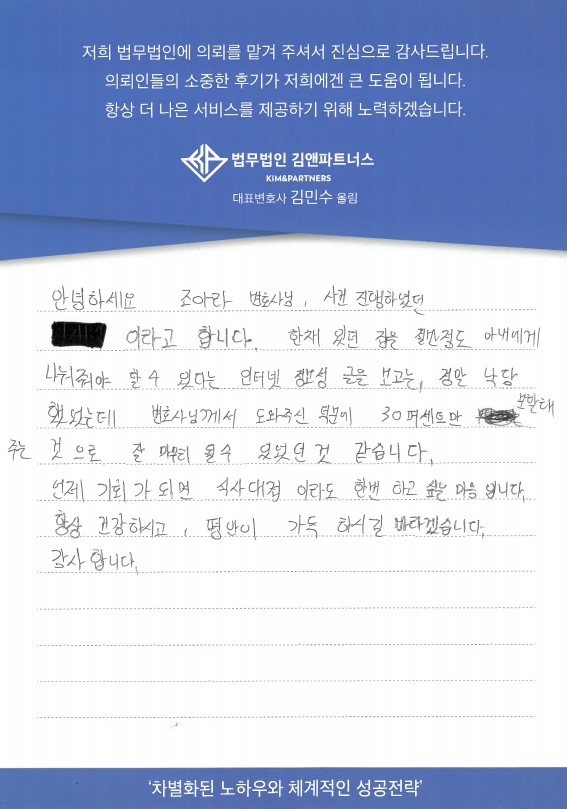 저희 법무법인에 의뢰를 맡겨 주셔서 진심으로 감사드립니다.
의뢰인들의 소중한 후기가 저희에겐 큰 도움이 됩니다.
항상 더 나은 서비스를 제공하기 위해 노력하겠습니다.
법무법인 김앤파트너스
KIM&PARTNERS
대표변호사 김민수 올림
안녕하세요 조아라 변호사님, 사건 진행하였던
이라고 합니다. 한채 있던 집을 절반정도 아내에게
나눠줘야 할 수 있다는 인터넷 정보성 글을 보고는, 정말 낙담
했었는데 변호사님께서 도와주신 덕분에 30퍼센트만 분할해
주는 것으로 잘 마무리 될수 있었던것 같습니다.
언제 기회가 되면 식사대접 이라도 한번 하고 싶은 마음 입니다.
항상 건강하시고, 평안이 가득 하시길 바라겠습니다.
감사 합니다.
'차별화된 노하우와 체계적인 성공전략'